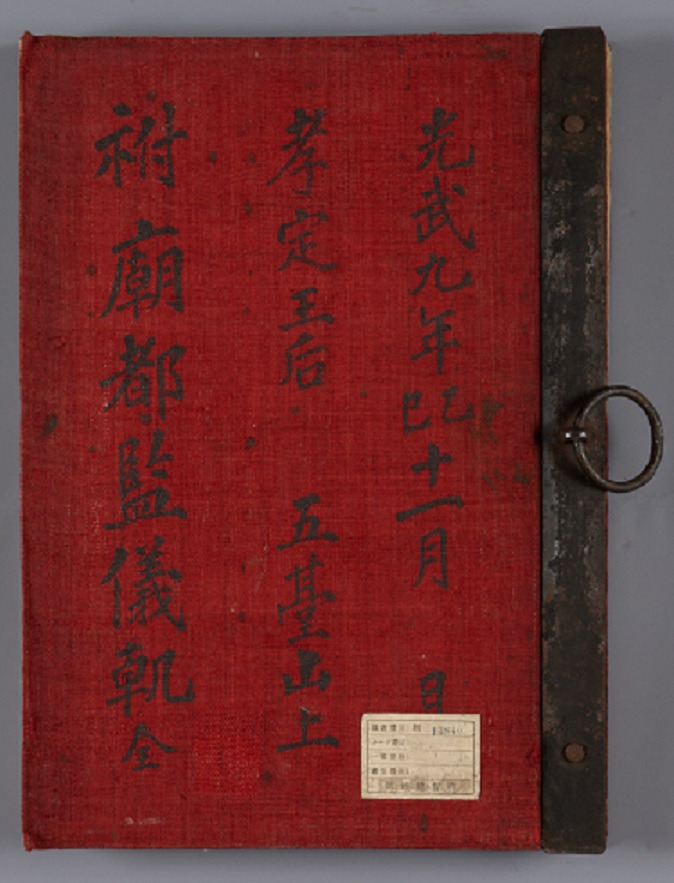 光武九年乙巳十一月 日
孝定王后 五臺山上
祔廟都監儀軌 全